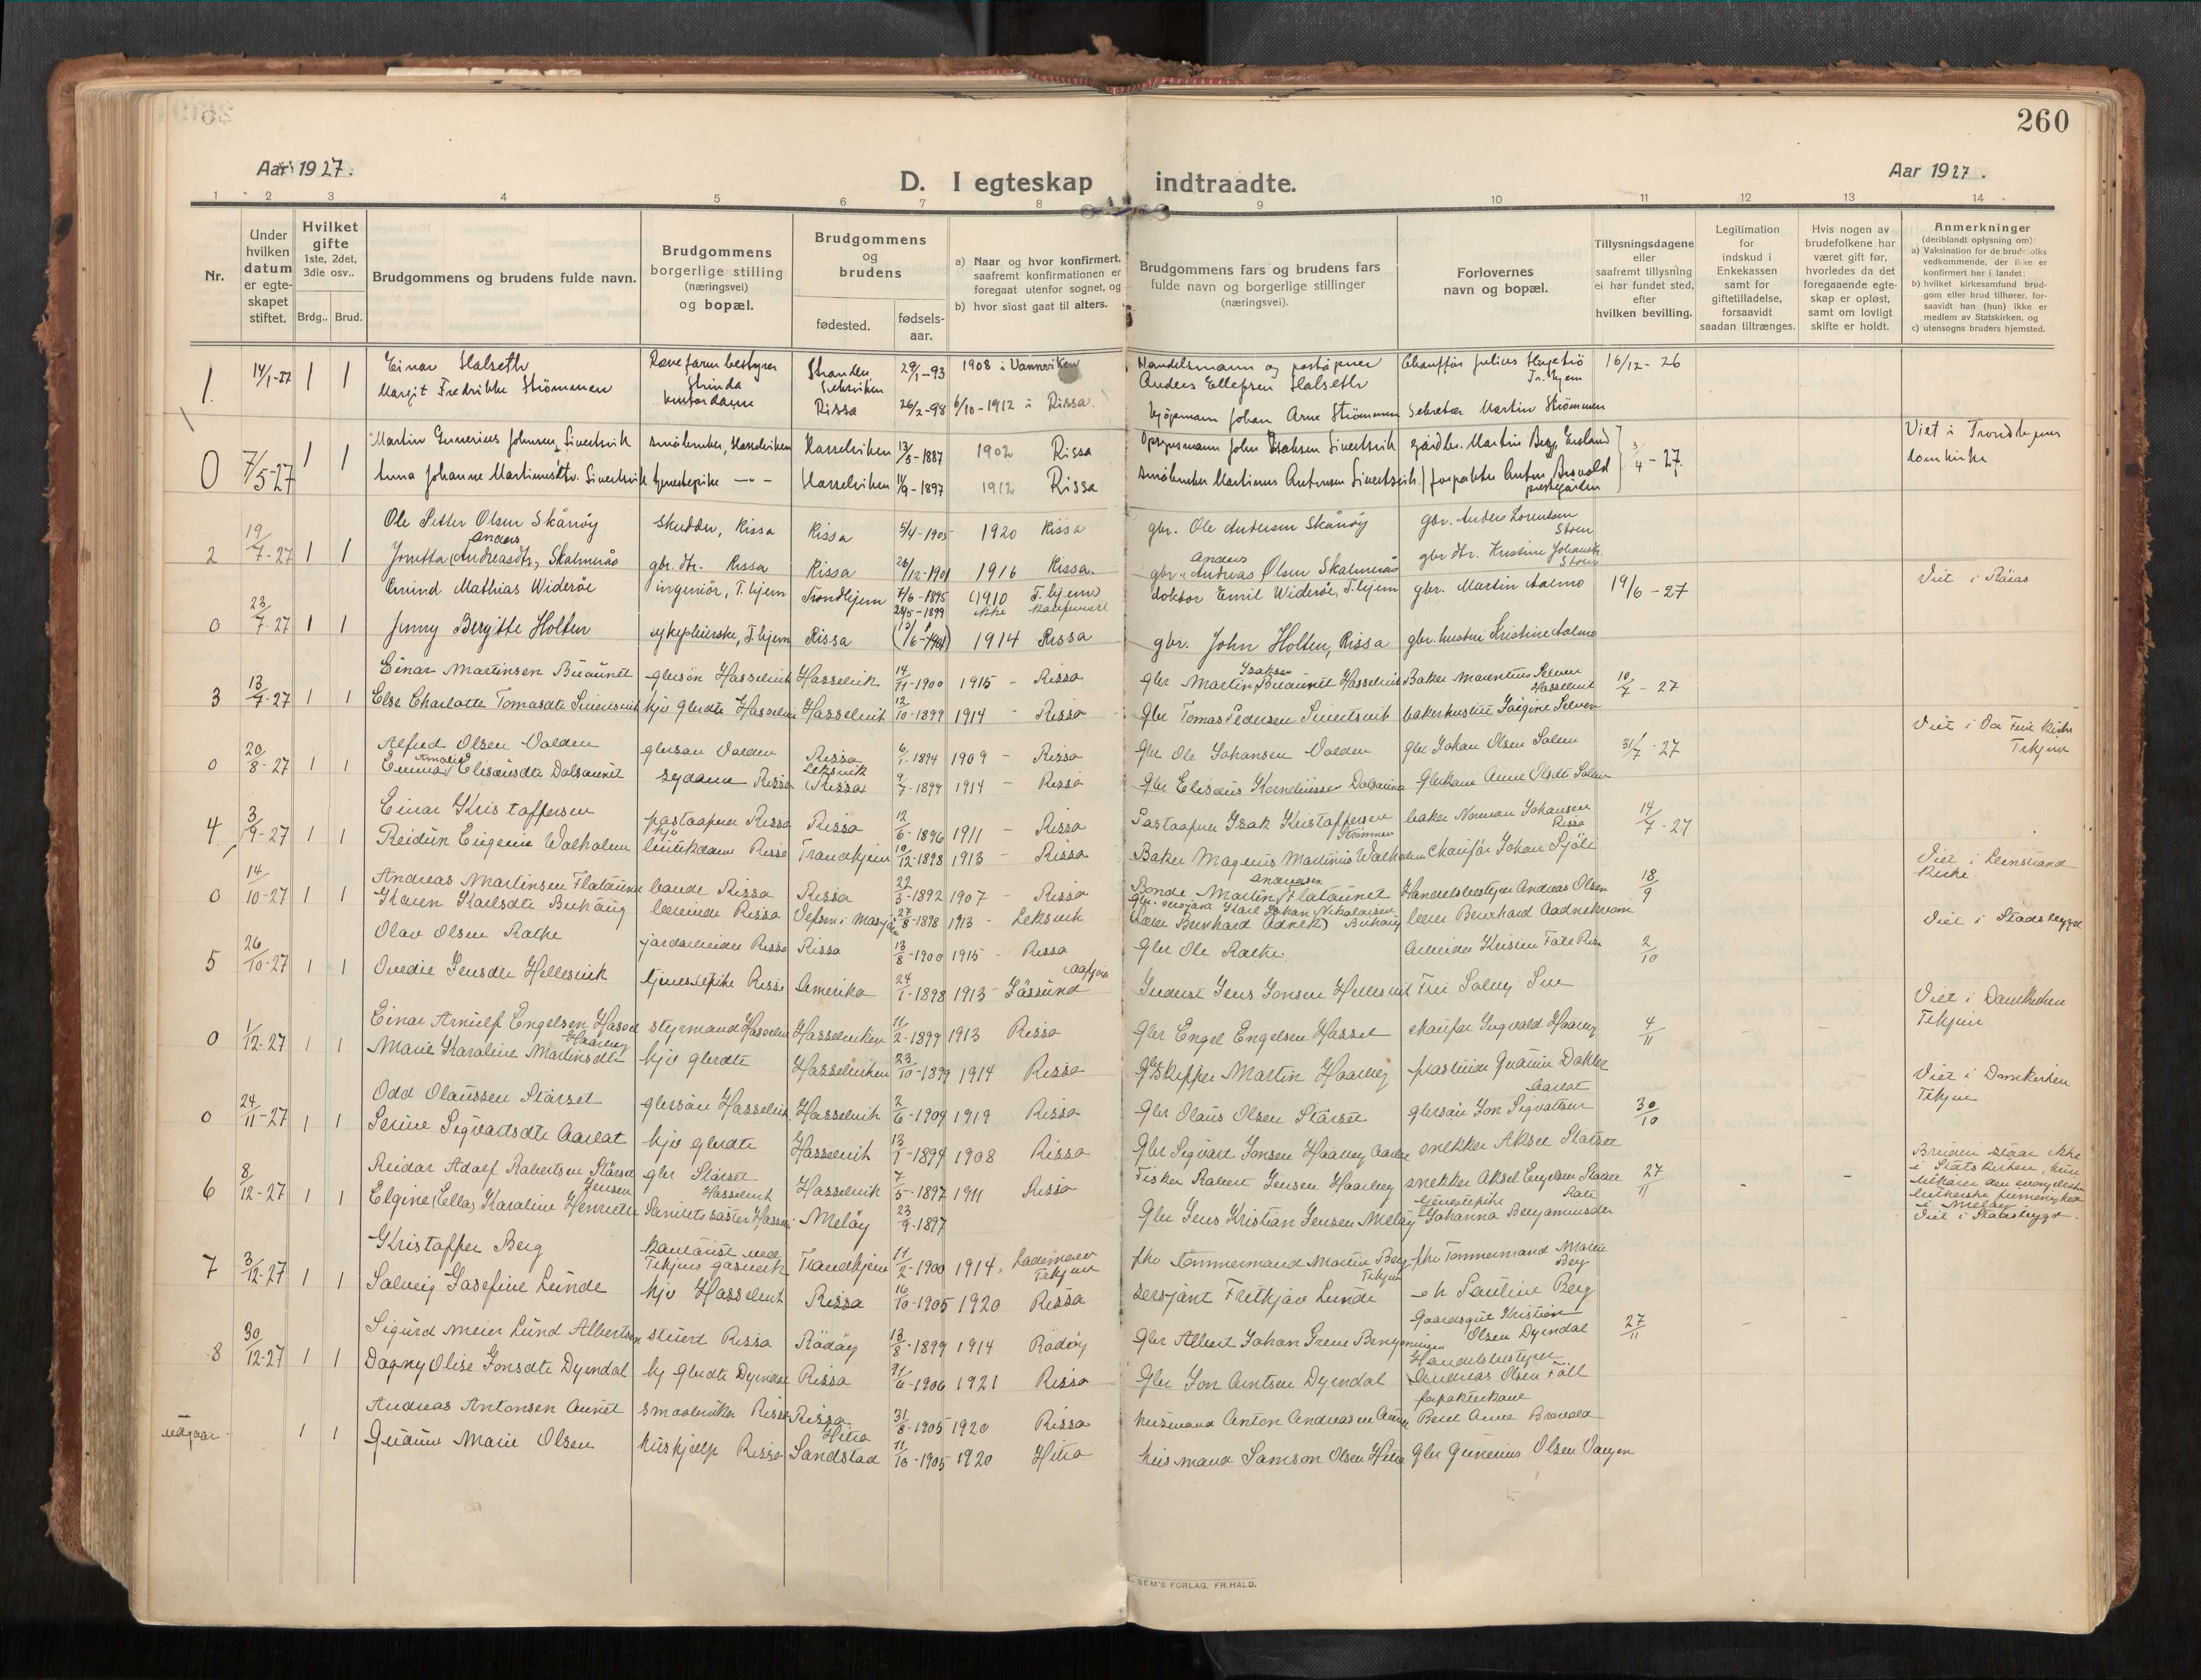 260
Aar 1927.
D. I egteskap indtraadte.
Aar 1927.
1 2 3 4 5 6 7 8 9 10 11 12 13 14
Nr.
Under hvilken datum er egteskapet stiftet.
Hvilket gifte 1ste, 2det, 3die osv..
Brdg.. Brud.
Brudgommens og brudens fulde navn.
Brudgommens borgerlige stilling (næringsvei) og bopæl.
Brudgommens og brudens
fødested.
fødsels-aar.
a) Naar og hvor konfirmert, saafremt konfirmationen er foregaat utenfor sognet, og
b) hvor sidst gaat til alters.
Brudgommens fars og brudens fars fulde navn og borgerlige stillinger (næringsvei).
Forlovernes navn og bopæl.
Tillysningsdagene eller saafremt tillysning ei har fundet sted, efter hvilken bevilling.
Legitimation for indskud i Enkekassen samt for giftetilladelse, forsaavidt saadan tiltrænges.
Hvis nogen av brudefolkene har været gift før, hvorledes da det foregaaende egteskap er opløst, samt om lovligt skifte er holdt.
Anmerkninger
(deriblandt oplysning om):
a) Vaksination for de brudefolks vedkommende, der ikke er konfirmert her i landet;
b) hvilket kirkesamfund brudgom eller brud tilhører, forsaavidt han (hun) ikke er medlem av Statskirken, og
c) utensogns bruders hjemsted.
1. 14/1-27 1 1 Einar Halseth Strinda 29/1-93 1908 i Vannviken Handelsmann og poståpner Anders Ellefsen Halseth Chauffør Julius Tr.hjem 16/12-26
Margit Fredrikke Strömmen kontordame Rissa 26/2-98 6/10-1912 i Rissa. Johan Arne Strömmen Sekretær Martin Strömmen
0 7/5-27 1 1 Martin Gunerius Johnsen Sivertsvik småbruker, Hasselviken Hasselviken 13/5-1887 1902 Rissa John Isaksen Sivertsvik Martin Berg 3/4-27. Viet i Trondhjems domkirke
Anna Johanne Martinusdtr. Sivertsvik tjenestepike -"- Hasselviken 11/9-1897 1912 Rissa småbruker Martinus Antonsen Sivertsvik forpakter Anton Brovold prestegården
2 19/7-27 1 1 Ole Petter Olsen Skånöy Rissa Rissa 5/4-1905 1920 Rissa gbr. Ole Andersen Skånöy gbr. Anders Lorentsen Stoen
Jonetta (Andreasdtr.) Anders Skalmerås gbr. dtr. Rissa Rissa 26/12-1901 1916 Rissa. gbr. Andreas Anders Olsen Skalmerås gbr dtr. Kristine Johansdtr. Stoen
0 23/7-27 1 1 Arvind Mathias Wideröe ingeniör, T.hjem Trondhjem 1910 T.hjem doktor Emil Wideröe, T.hjem gbr. Martin Aalmo 19/6-27 Viet i Röros
Jenny Bergitte Holten sykepleierske, T.hjem Rissa 1914 Rissa gbr. John Holten, Rissa gbr. hustru Kristine Aalmo
3 13/7-27 1 1 Einar Martinsen Buaunet gbrsön Hasselvik Hasselvik 14/11-1900 1915 - Rissa Gbr Martin Isaksen Buaunet Hasselvik Baker Marentius Selven Hasselvik 10/7-27
Else Charlotte Tomasdtr Sivertsvik hjv gbrdtr Hasselvik Hasselvik 12/10-1899 1914 - Rissa Gbr Tomas Pedersen Sivertsvik bakerhustru Jörgine Selven
0 20/8-27 1 1 Alfred Olsen Valden gbrsön Valden Rissa 6/1-1894 1909 - Rissa Gbr Ole Johansen Valden Gbr Johan Olsen Solem 31/7-27 Viet i Vor Frue Kirke Trhjem
Emma Amalie Eliseusdtr Dalsaunet sydame Rissa Leksvik (Rissa) 9/7-1899 1914 - Rissa Gbr Eliseus Korneliussen Dalsaunet Gbrkone Anne Olsdtr Solem
4 3/9-27 1 1 Einar Kristoffersen postaapner Rissa Rissa 12/6-1896 1911 - Rissa Postaapner Isak Kristoffersen Strömmen baker Norman Johansen Rissa 14/7-27
Reidun Eugenie Walholm hjv butikdame Rissa Trondhjem 10/12-1898 1913 - Rissa Baker Magnus Martinius Walholm Chauför Johan Sjöli
0 14/10-27 1 1 Andreas Martinsen Flataunet bonde Rissa Rissa 22/3-1892 1907 - Rissa Bonde Martin Andreasen Flataunet Handelsbestyrer Andreas Olsen 18/9 Viet i Leinstrand Kirke.
Karen Karlsdtr Buhaug lærerinde Rissa Vefsen i Mosjöen 27/8-1898 1913 - Leksvik Karl Johan Nikolaisen Buhaug lærer Bernhard Aadnekvam
5 26/10-27 1 1 Olav Olsen Rathe jordarbeider Rissa Rissa 13/8-1900 1915 - Rissa Gbr Ole Rathe. Arbeider Kristen 2/10 Viet i Stadsbygd
Ovedie Jensdtr Hellesvik tjenestepike Rissa Amerika 24/1-1898 1913 - Jössund Aafjord Jens Jonsen Hellesvik Fru Solveig
0 1/12-27 1 1 Einar Arnulf Engelsen Hassel styrmand Hasselvik Hasselviken 11/2-1899 1913 Rissa Gbr Engel Engelsen Hassel chauför Ingvald Haarberg 4/11 Viet i Domkirken Trhjem
Marie Karoline Martinsdtr Haarberg hjv gbrdtr Hasselviken 23/10-1899 1914 Rissa Skipper Martin Haarberg
0 24/11-27 1 1 Odd Olaussen Stårset gbrsön Hasselvik Hasselvik 2/6-1904 1919 Rissa Gbr Olaus Olsen Stårset gbrsön Jon Sigvaldsen Aarlot 30/10 Viet i Domkirken Trhjem
Serine Sigvartsdtr Aarlot hjv gbrdtr Hasselvik 13/1-1894 1908 Rissa Gbr Sigvart Jonsen Haarberg snekker Aksel Stårset
6 8/12-27 1 1 Reidar Adolf Robertsen Stårset gbr Stårset Hasselvik Hasselvik 7/5-1897 1911 Rissa Fisker Robert Jensen Haarberg snekker Aksel Engelsen 27/11 - - Bruden staar ikke i Statskirken, hun tilhörer den evangeliske lutherske frimenighet i Melöy. Viet i Stadsbygd.
Elgine (Ella) Karoline Henriette Jensen Hasselvik Melöy 23/9-1897 Gbr Jens Kristian Jensen Melöy tjenestepike Johanna Benjaminsdtr
7 3/12-27 1 1 Kristoffer Berg Trhjems gasverk Trondhjem 11/2-1900 1914 - Lademoen Trhjem fhv Tömmermand Martin Berg Trhjem fhv Tömmermand Martin Berg
Solveig Josefine Lunde hjv Hasselvik Rissa 16/10-1905 1920 Rissa sersjant Frithjov Lunde Pauline Berg
8 30/12-27 1 1 Sigurd Meier Lund Albertsen stuert Rissa Rödöy 13/8-1899 1914 Rödöy Gbr Albert Johan Greve Benjaminsen Gaardsgut Kristian Olsen Dyrndal 27/11 - -
Dagny Olise Jonsdtr Dyrndal hj gbrdtr Dyrndal Rissa 1906 1921 Rissa Gbr Jon Arntsen Dyrndal Handelsbestyrer Andreas Olsen Föll
utgaar. 1 1 Andreas Antonsen Aunet smaabruker Rissa Rissa 31/8-1905 1920 Rissa husmand Anton Andreasen Aunet forpakterkone Beret Anna Brovold
Gudrun Marie Olsen hushjælp Rissa Hitra Sandstad 11/10-1905 1920 Hitra husmand Samson Olsen Hitra Gbr Gunerius Olsen Vangen
SEM'S FORLAG, FR.HALD.